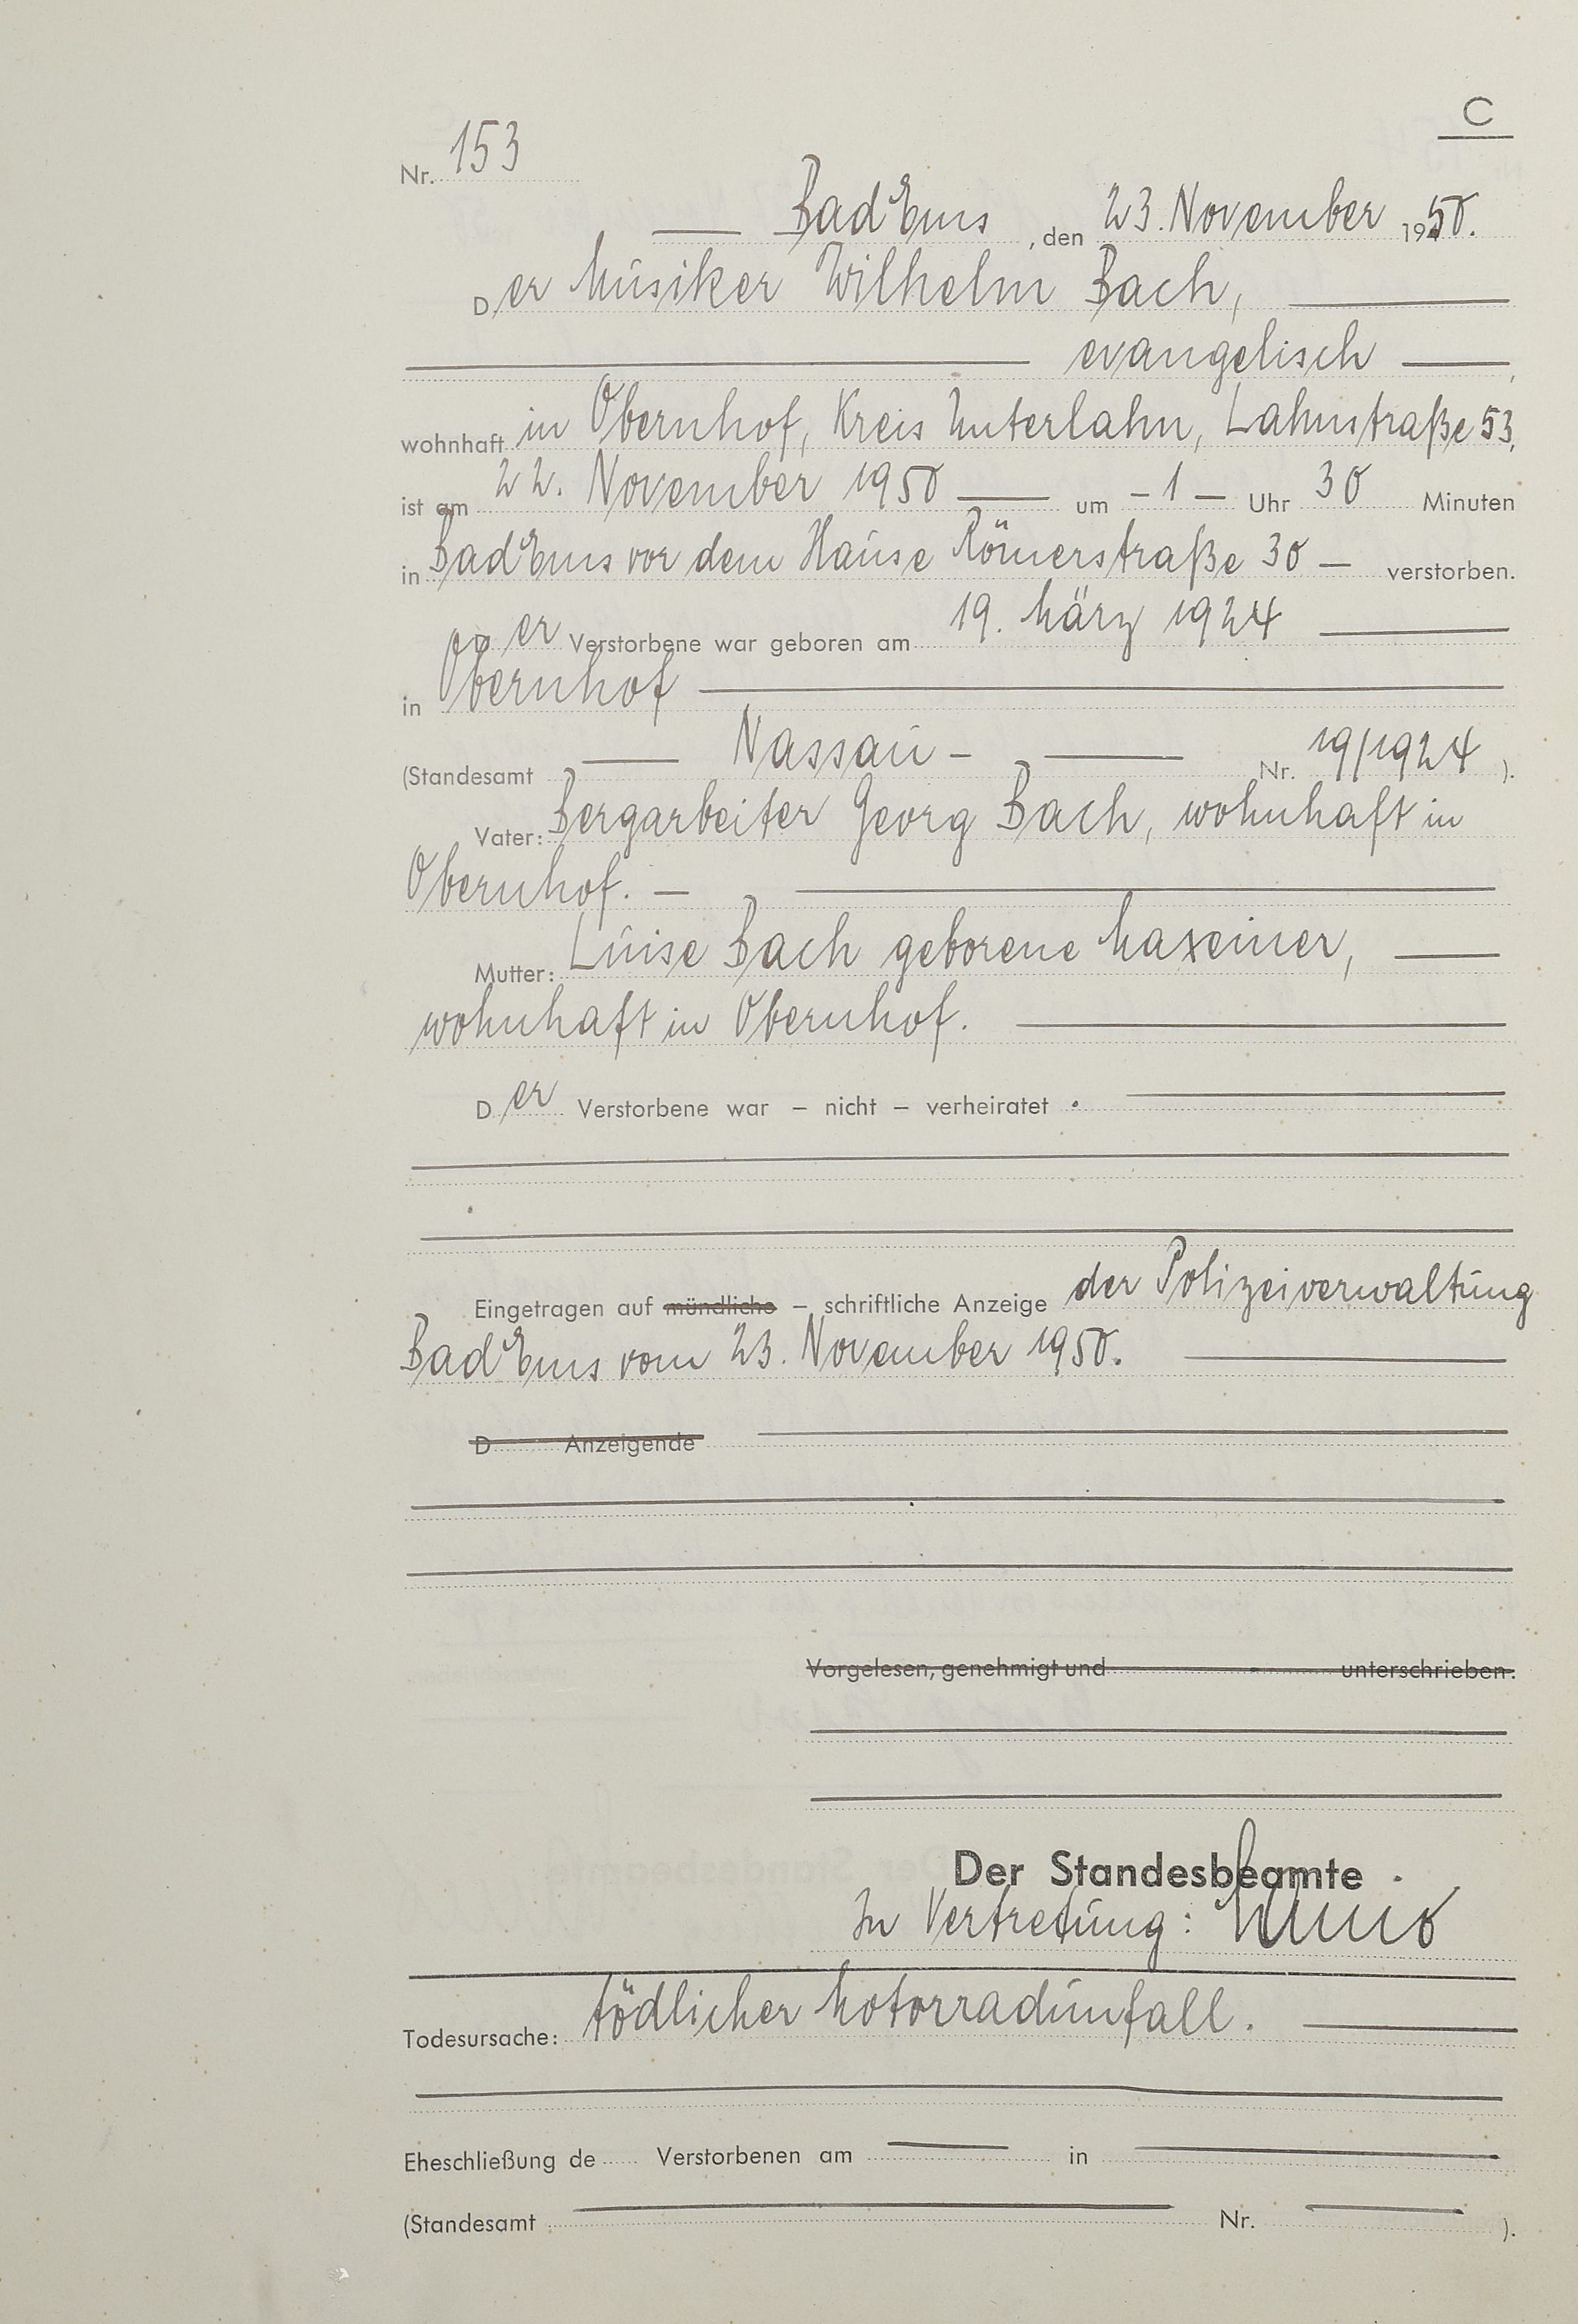 C
Nr. 153
Bad Ems, den 23. November 1950.
Der Musiker Wilhelm Bach,
evangelisch,
wohnhaft in Obernhof, Kreis Unterlahn, Lahnstraße 53,
ist am 22. November 1950 um - 1 - Uhr 30 Minuten
in Bad Ems vor dem Hause Römerstraße 30 verstorben.
Der Verstorbene war geboren am 19. März 1924
in Obernhof
(Standesamt Nassau - Nr. 19/1924 ).
Vater: Bergarbeiter Georg Bach, wohnhaft in
Obernhof. -
Mutter: Luise Bach geborene Maxeiner,
wohnhaft in Obernhof.
Der Verstorbene war - nicht - verheiratet.
Eingetragen auf mündliche - schriftliche Anzeige der Polizeiverwaltung
Bad Ems vom 23. November 1950.
D Anzeigende
Vorgelesen, genehmigt und unterschrieben.
Der Standesbeamte
In Vertretung:
Todesursache: tödlicher Motorradunfall.
Eheschließung de Verstorbenen am in
(Standesamt Nr. ).